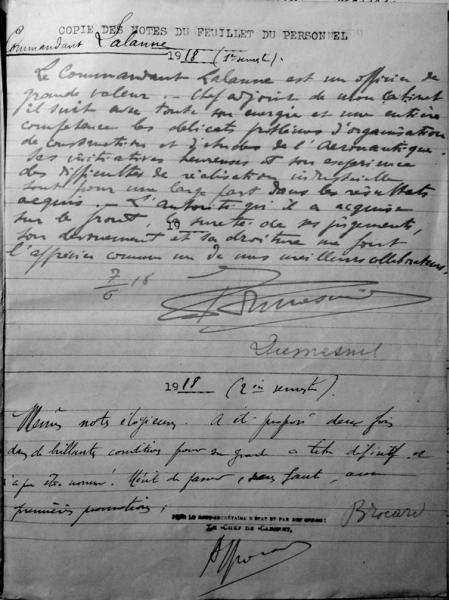 COPIE DES NOTES DU FEUILLET DU PERSONNEL
Commandant Lalanne
1918 (1er semest.)
Le Commandant Lalanne est un officier de
grande valeur. - Chef adjoint de mon Cabinet
il suit avec toute son energie et une entière
competence les délicats problèmes d'organisation
de constructions et d'études de l'Aeronautique.
Ses initiatives heureuses et son experience
des difficultés de réalisation industrielle
sont pour une large part dans les résultats
acquis. - L'autorité qu'il a acquise
sur le front, la sureté de ses jugements,
19
son devouement et sa droiture me font
l'apprécier comme un de mes meilleurs collaborateurs.
7/6 18
Dumesnil
1918 (2em semestre).
Mêmes notes élogieuses. A été proposé deux fois
dans de brillantes conditions pour son grade a titre définitif et
n'a pu être nommé. Mérit de passer, sans faut, aux
premières promotions.
POUR LE SOUS-SECRÉTAIRE D'ETAT ET PAR SON ORDRE:
LE CHEF DE CABINET,
Brocard